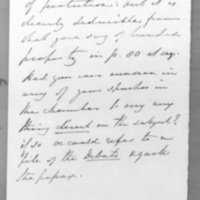 of protection: but it is
clearly deducible from
what you say of landed
property in p. 80 et seq.
Had you ever occasion in
any of your speeches in
the chamber to say any
thing direct on the subject?
if so or could refer to a
file of the Debats & quote
the passage.